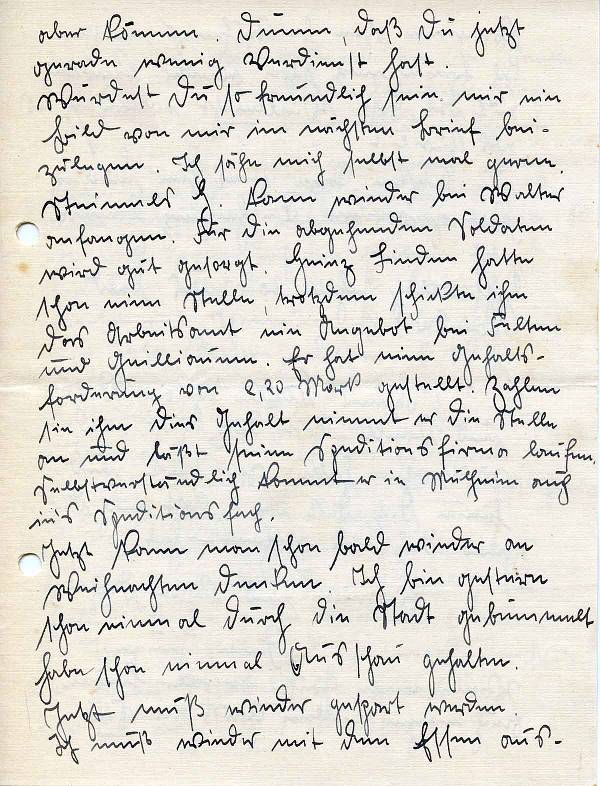 aber kommen. Dumm, daß Du jetzt
gerade wenig Verdienst hast.
Würdest Du so freundlich sein mir ein
Bild von mir im nächsten Brief bei-
zulegen. Ich sähe mich selbst mal gerne.
Steinmeier H. kann wieder bei Walter
anfangen. Für die abgehenden Soldaten
wird gut gesorgt. Heinz Finden hatte
schon eine Stelle, trotzdem schickte ihm
das Arbeitsamt ein Angebot bei Felten
und Guilliaume. Er hat eine Gehalts-
forderung von 2,20 Mark gestellt. Zahlen
sie ihm dies Gehalt nimmt er die Stelle
an und läßt seine Speditionsfirma laufen.
Selbstverständlich kommt er in Mülheim auch
in's Speditionsfach.
Jetzt kann man schon bald wieder an
Weihnachten denken. Ich bin gestern
schon einmal durch die Stadt gebummelt
habe schon einmal Ausschau gehalten.
Jetzt muß wieder gespart werden.
Ich muß wieder mit dem Essen aus-